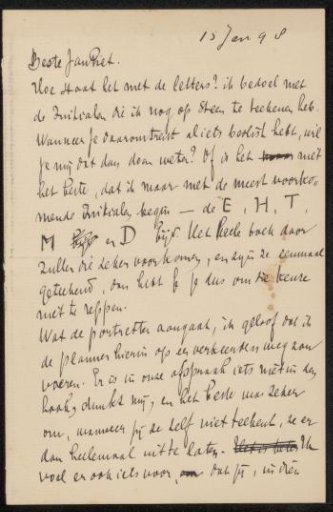 15 Jan 98
Beste Jan Piet.
Hoe staat het met de letters? ik bedoel met
de Initialen die ik nog op steen te teekenen heb.
Wanneer je daaromtrent al iets beslist hebt, wil
je mij dat dan doen weten? Of is het niet
het beste, dat ik maar met de meest voorko-
mende Initialen begin — de E, H, T,
M en D bijv. Het heele boek door
zullen die zeker voorkomen, en zijn ze eenmaal
geteekend, dan hebt je dus om de keuze
niet te reppen.
Wat de portretten aangaat, ik geloof dat ik
de plannen hierin op een verkeerden weg aan
voeren. Er is in onze afspraak iets niet in den
haak, dunkt mij, en het beste was zeker
om, wanneer jij ze zelf niet teekent, ze er
dan heelemaal uit te laten. Ik
voel er ook iets voor, dat jij, indien